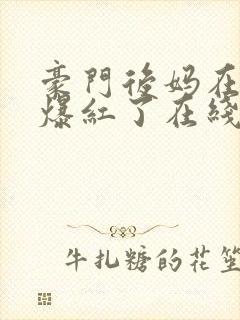 豪門後妈在
爆紅了在綫
牛扎糖的花笙